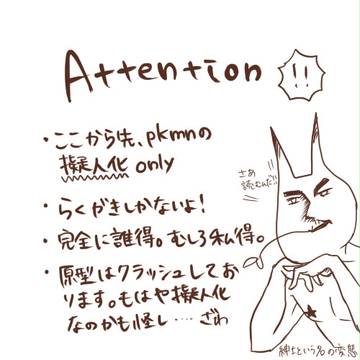 Attention!!
・ここから先、pkmnの
擬人化 only
・らくがきしかないよ!
・完全に誰得。むしろ私得。
・原型はクラッシュしてお
ります。もはや擬人化
なのかも怪し……ざわ
さあ
読むんだ!!
紳士という名の変態